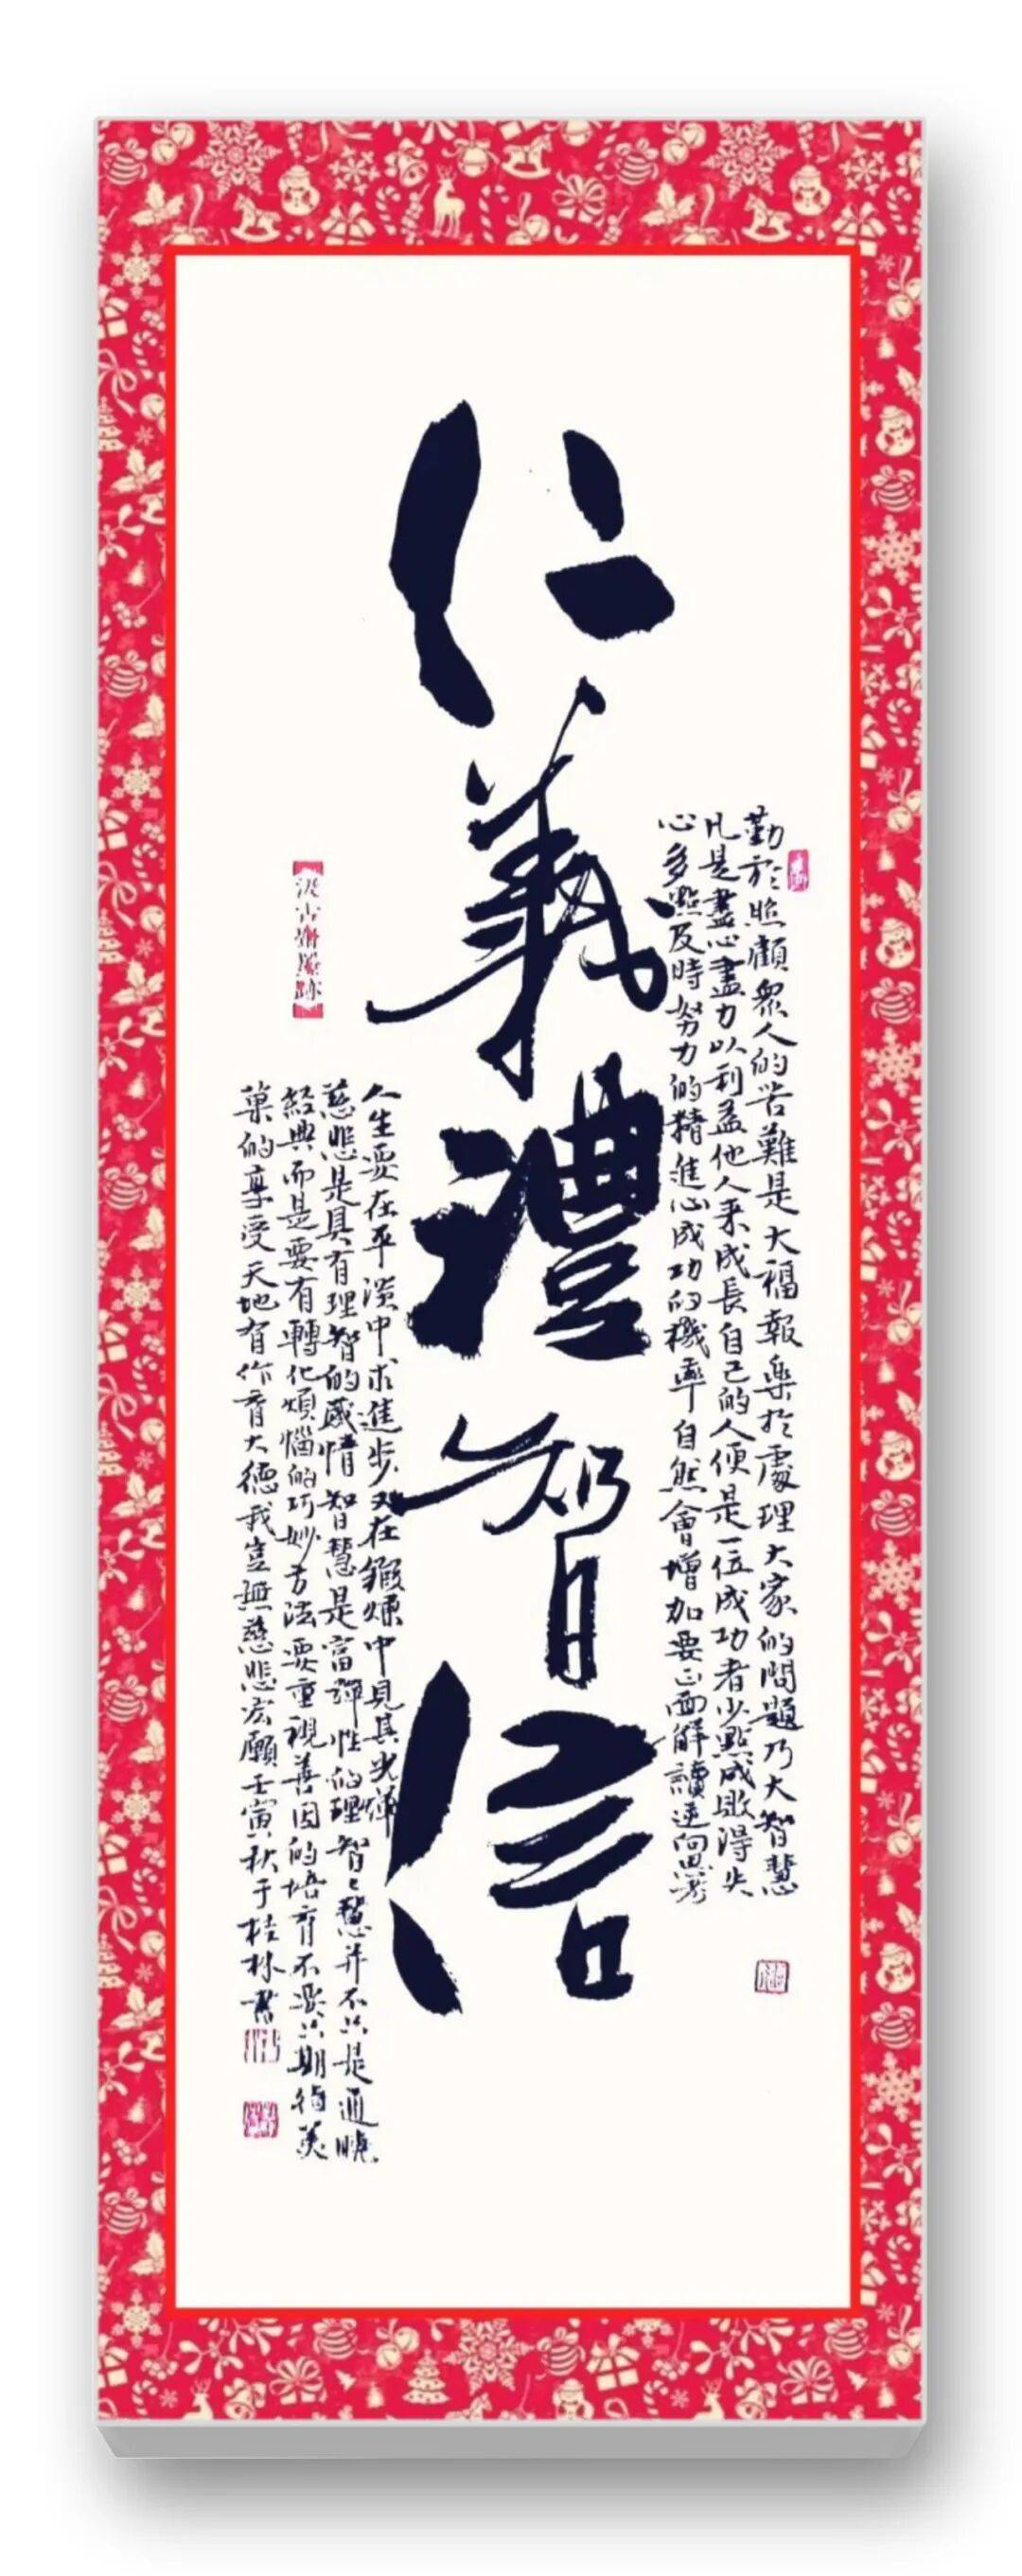 仁義禮智信
勤於照顧衆人的苦難是大福報樂於處理大家的問題乃大智慧
凡是盡心盡力以利益他人来成長自己的人便是一位成功者少點成敗得失
心多點及時努力的精進心成功的機率自然會增加要正面解讀逆向思考
人生要在平淡中求進步又在鍛煉中見其光輝
慈悲是具有理智的感情智慧是富彈性的理智々慧并不只是通曉
經典而是要有轉化煩惱的巧妙方法要重視善因的培育不要只期待美
菓的享受天地有作育大德我豈無慈悲宏願壬寅秋于桂林書
汲古齋墨跡